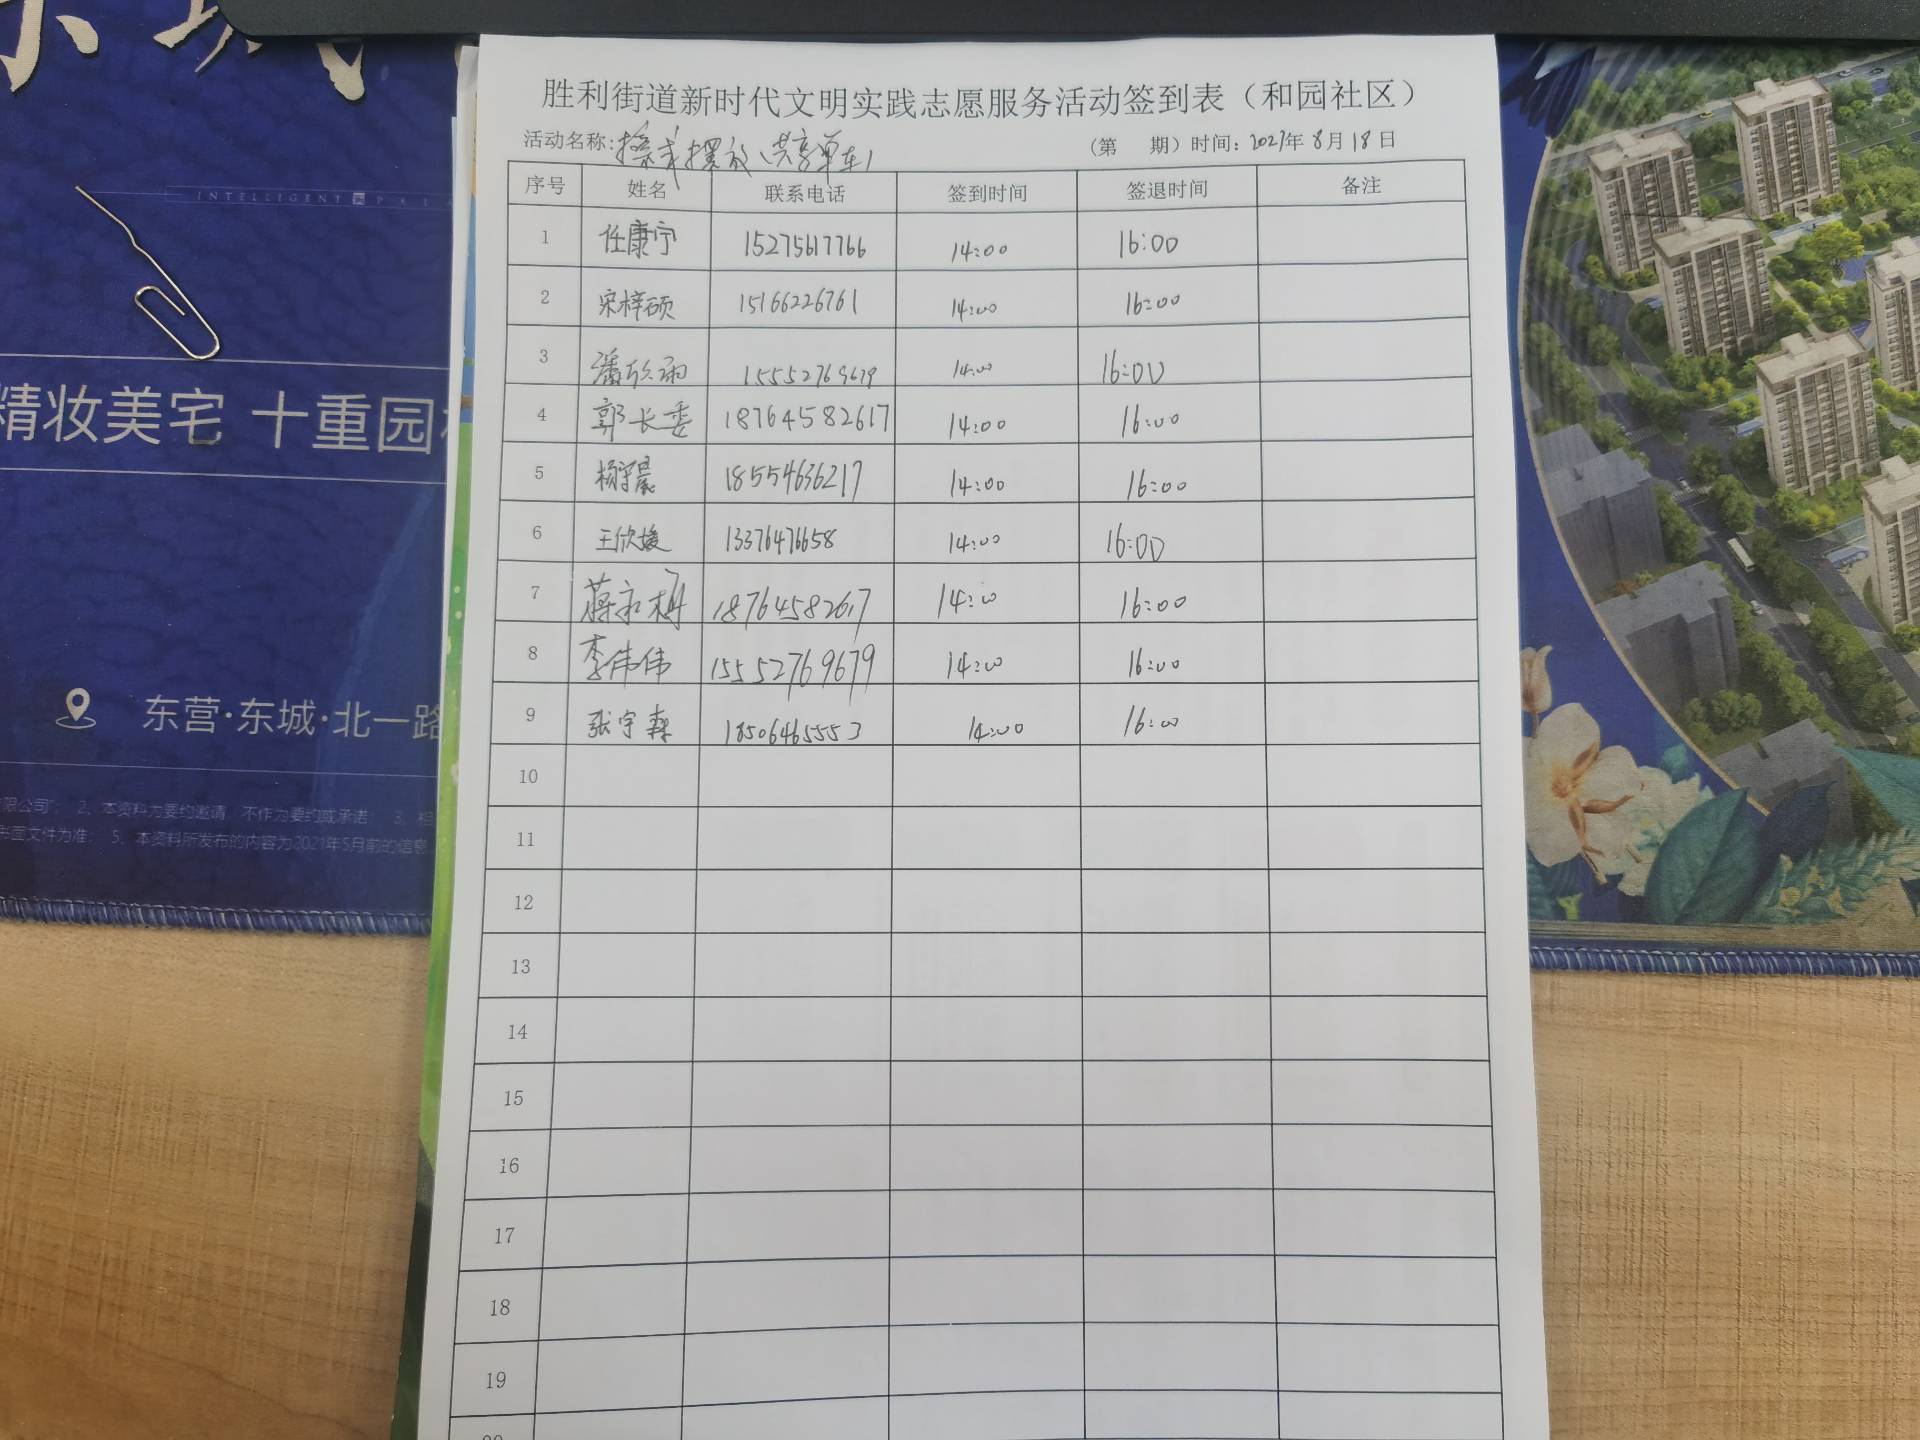 胜利街道新时代文明实践志愿服务活动签到表（和园社区）
活动名称: 摆放(共享单车)
（第 期）时间: 2021年8月18日
序号 姓名 联系电话 签到时间 签退时间 备注
1 任康宁 15275617766 14:00 16:00
2 宋梓硕 15166226761 14:00 16:00
3 潘欣雨 15552769679 14:00 16:00
4 郭长委 18764582617 14:00 16:00
5 杨宇晨 18554636217 14:00 16:00
6 王欣媛 13376476658 14:00 16:00
7 蒋永梅 18764582617 14:00 16:00
8 李伟伟 15552769679 14:00 16:00
9 张宇森 18506465553 14:00 16:00
10
11
12
13
14
15
16
17
18
19
INTELLIGENT
精妆美宅 十重园
东营·东城·北一路
限公司; 2、本资料为要约邀请, 不作为要约或承诺; 3、相
书面文件为准; 5、本资料所发布的内容为2021年5月前的信息